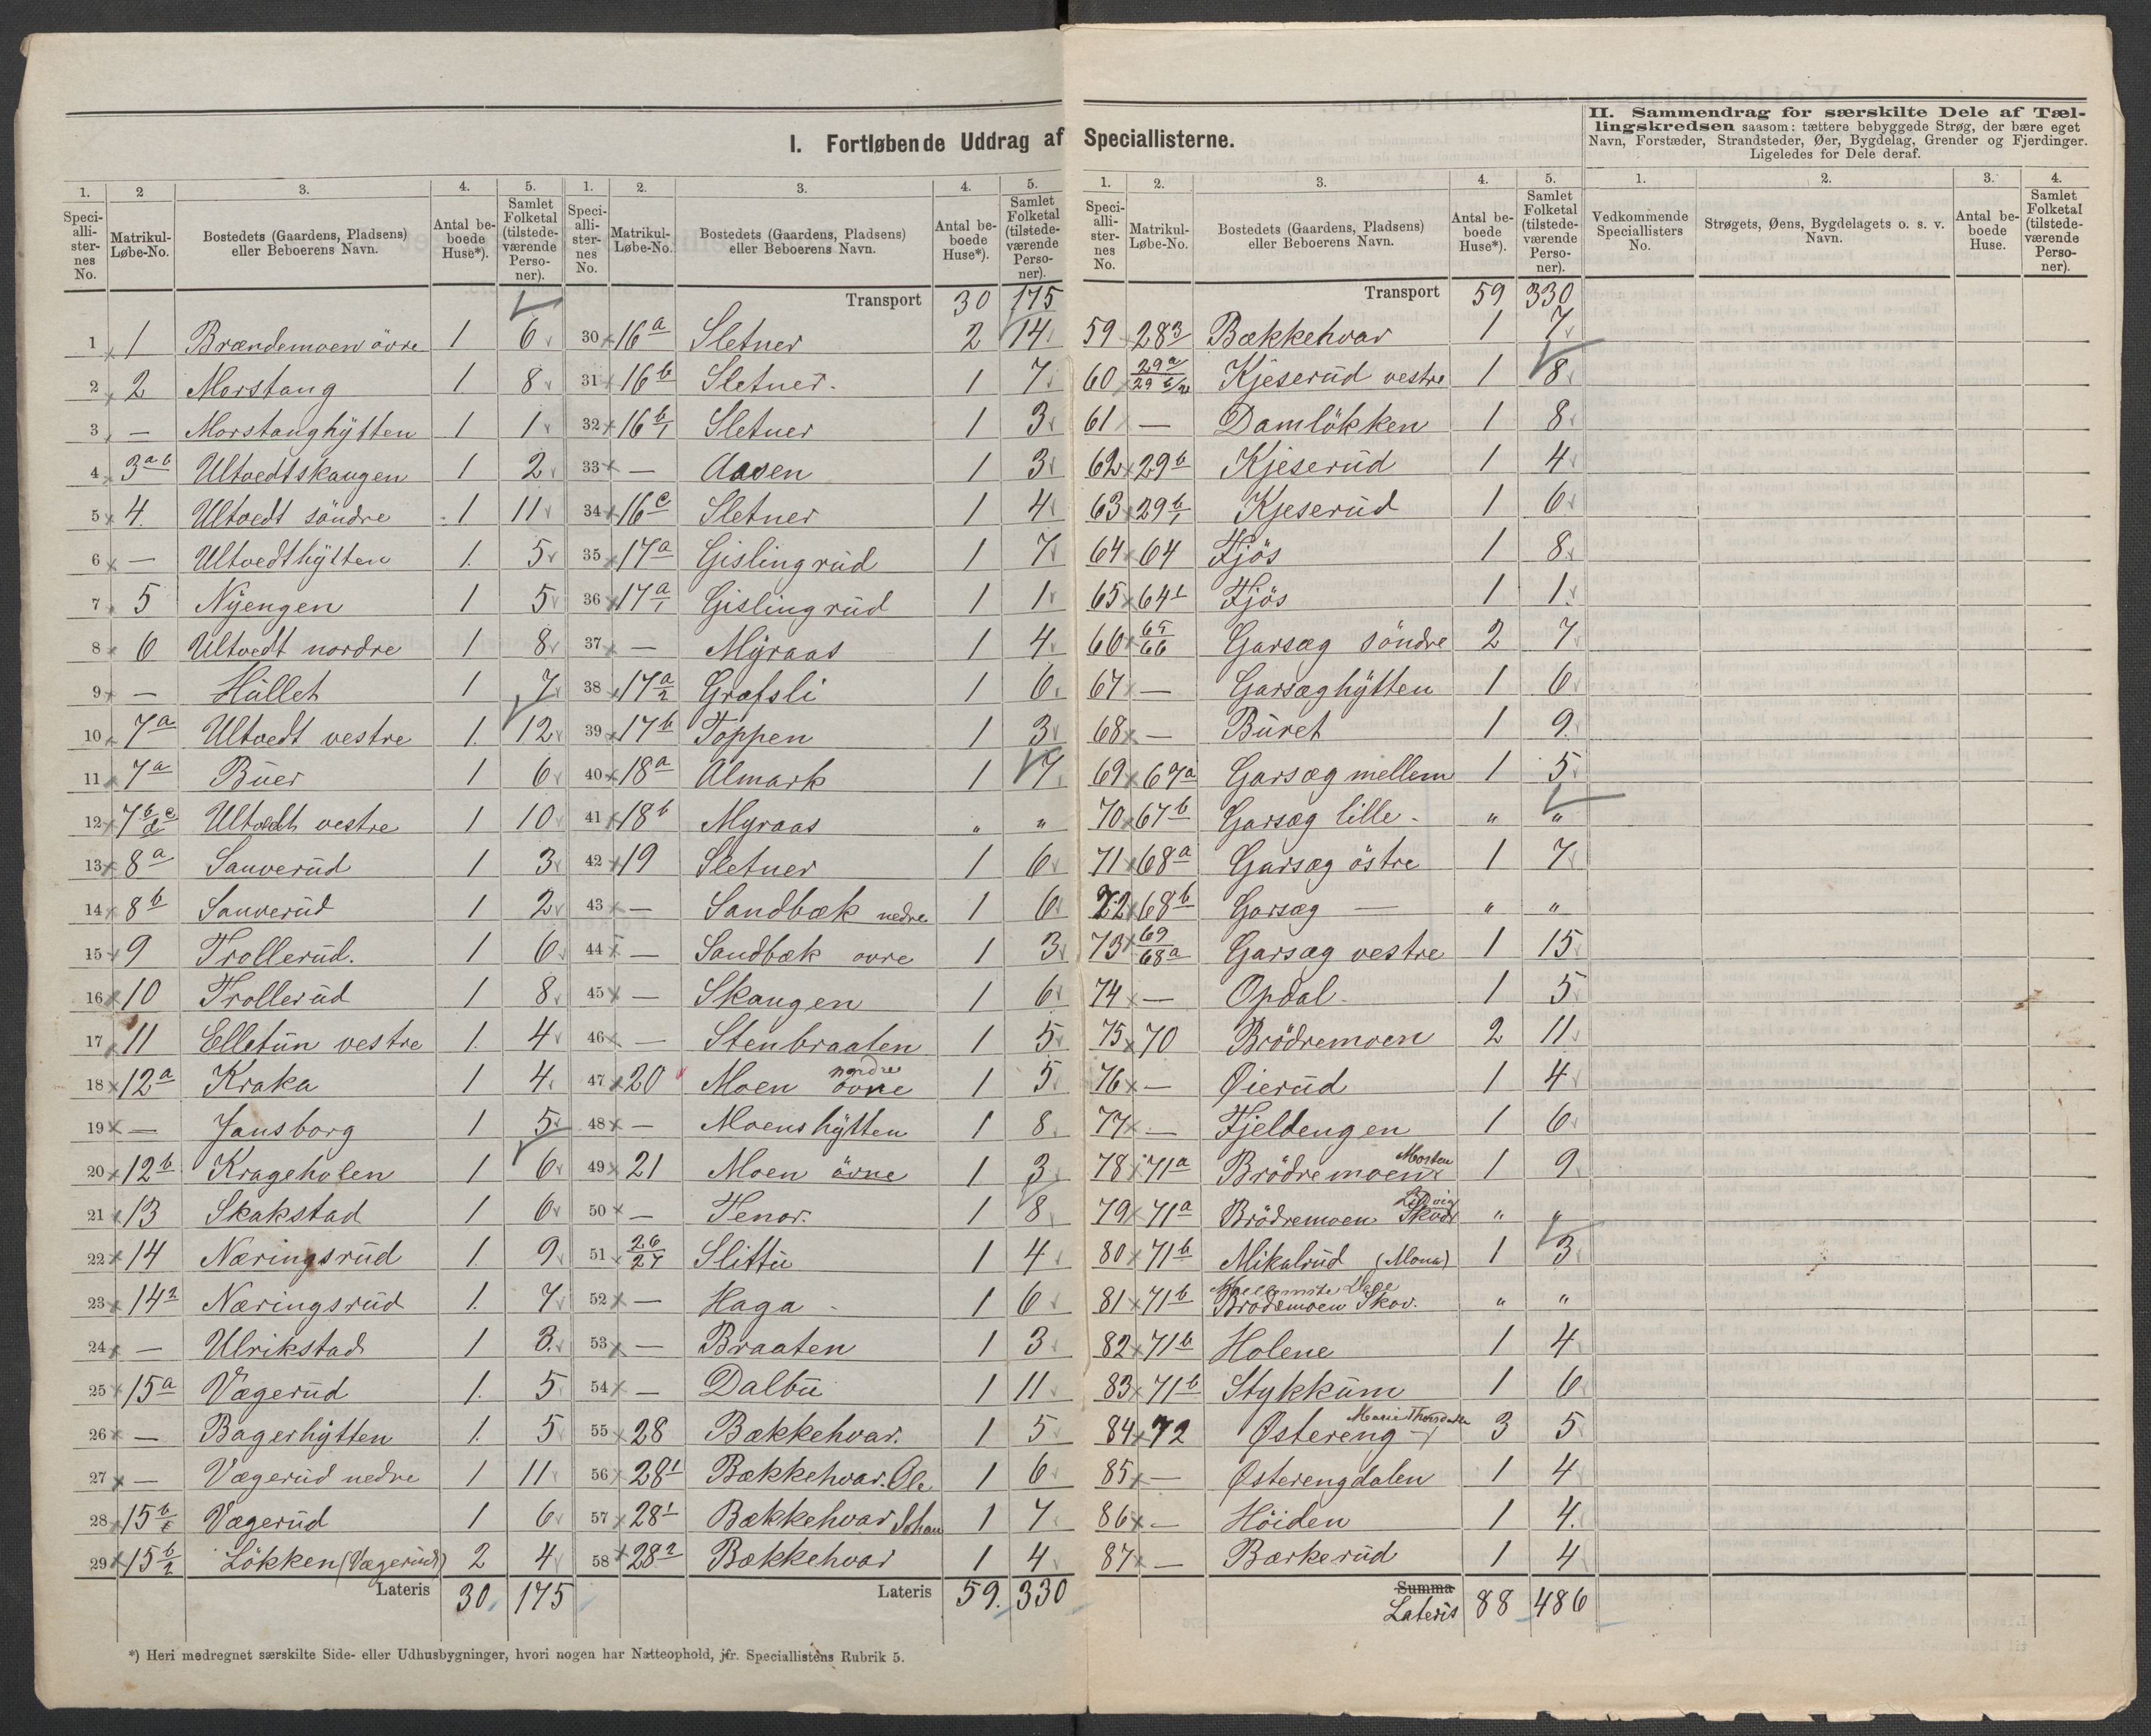 I. Fortløbende Uddrag af Speciallisterne.
II. Sammendrag for særskilte Dele af Tæl-
lingskredsen saasom: tættere bebyggede Strøg, der bære eget
Navn, Forstæder, Strandsteder, Øer, Bygdelag, Grender og Fjerdinger.
Ligeledes for Dele deraf.
1. 2 3. 4. 5.
Speci-alli-ster-nes No. Matrikul-Løbe-No. Bostedets (Gaardens, Pladsens) eller Beboerens Navn. Antal be-boede Huse*). Samlet Folketal (tilstede-værende Perso-ner).
1 1 Brændemoen övre 1 6
2 2 Morstang 1 8
3 — Morstanghytten 1 1
4 3 a b Ultvedtskaugen 1 2
5 4. Ultvedt söndre 1 11
6 — Ultvedthytten 1. 5
7 5 Nyengen 1 5
8 6 Ultvedt nordre 1 8
9 — Hullet 1 7
10 7 a Ultvedt vestre 1. 12
11 7 a Buer 1 6
12 7 b c d Ultvedt vestre 1 10
13 8 a Sauverud 1 3
14 8 b Sauverud 1 2
15 9 Trollerud. 1 6
16 10 Trollerud 1 8
17 11 Elletun vestre 1. 4
18 12 a Kraka 1 4
19 — Jansborg 1 5
20 12 b Krageholen 1 6
21 13 Skakstad 1 6
22 14 Næringsrud 1. 9
23 14 2 Næringsrud 1. 7
24 — Ulrikstad 1 3.
25 15 a Vægerud 1. 5
26 — Bagerhytten 1. 5
27 — Vægerud nedre 1 11
28 15 b/1 Vægerud 1 6
29 15 b/2 Lökken (Vægerud) 2 4
Lateris 30. 175
1. 2. 3. 4. 5.
Speci-alli-ster-nes No. Matrikul-Løbe-No. Bostedets (Gaardens, Pladsens) eller Beboerens Navn. Antal be-boede Huse*). Samlet Folketal (tilstede-værende Perso-ner).
Transport 30 175
30 16 a Sletner 2 14
31 16 b Sletner. 1 7
32 16 b/1 Sletner 1 3
33 — Aasen 1 3
34 16 c Sletner 1 4
35 17 a Gislingrud 1 7
36 17 a/1 Gislingrud 1 1
37 — Myraas 1 4
38 17 a/2 Grafsli 1 6
39 17 b Toppen 1 3
40 18 a Almark 1 7
41 18 b Myraas " "
42 19 Sletner 1 6
43 — Sandbæk nedre 1 6
44 — Sandbæk ovre 1 3
45 — Skaugen 1 6
46 — Stenbraaten 1 5
47 20 Moen nordre övre 1 5
48 — Moenshytten 1 8
49 21 Moen övre 1 3
50 — Tenor. 1 8
51 26/27 Slittu 1 4
52 — Haga 1 6
53 — Braaten 1 3
54 — Dalbu 1 11
55 28 Bækkehvar. 1 5
56 28 1 Bækkehvar. Ole 1 6
57 28 1 Bækkehvar Johan 1 7
58 28 2 Bækkehvar 1 4
Lateris 59. 330
1. 2. 3. 4. 5.
Speci-alli-ster-nes No. Matrikul-Løbe-No. Bostedets (Gaardens, Pladsens) eller Beboerens Navn. Antal be-boede Huse*). Samlet Folketal (tilstede-værende Perso-ner).
Transport 59 330
59 28 3 Bækkehvar 1 7
60 29 a/29 b/2 Kjeserud vestre 1 8
61 — Damlökken 1 8
62 29 b Kjeserud 1 4
63 29 b/1 Kjeserud 1 6
64 64 Fjös 1 8
65 64 1 Fjös 1 1
66 65/66 Garsæg söndre 2 7
67 — Garsæghytten 1 6
68 — Buret 1 9
69 67 a Garsæg mellem 1 5
70 67 b Garsæg lille " "
71 68 a Garsæg östre 1 7
72 68 b Garsæg — " "
73 69/68 a Garsæg vestre 1 15
74 — Opdal 1 5
75 70 Brödremoen 2 11
76 — Øierud 1 4
77 — Fjeldengen 1 6
78 71 a Brödremoen Morten 1 9
79 71 a Brödremoen " "
80 71 b Mikalrud (Mona) 1 3
81 71 b Brödremoen Skov. " "
82 71 b Holene 1 4
83 71 b Stykkum 1 6
84 72 Østereng 3 5
85 — Østerengdalen 1 4
86 — Höiden 1 4
87 — Bærkerud 1 4
Summa
Lateris 88 486
1. 2. 3. 4.
Vedkommende Speciallisters No. Strøgets, Øens, Bygdelagets o. s. v. Navn. Antal be-boede Huse. Samlet Folketal (tilstede-værende Perso-ner).
*) Heri medregnet særskilte Side- eller Udhusbygninger, hvori nogen har Natteophold, jfr. Speciallistens Rubrik 5.